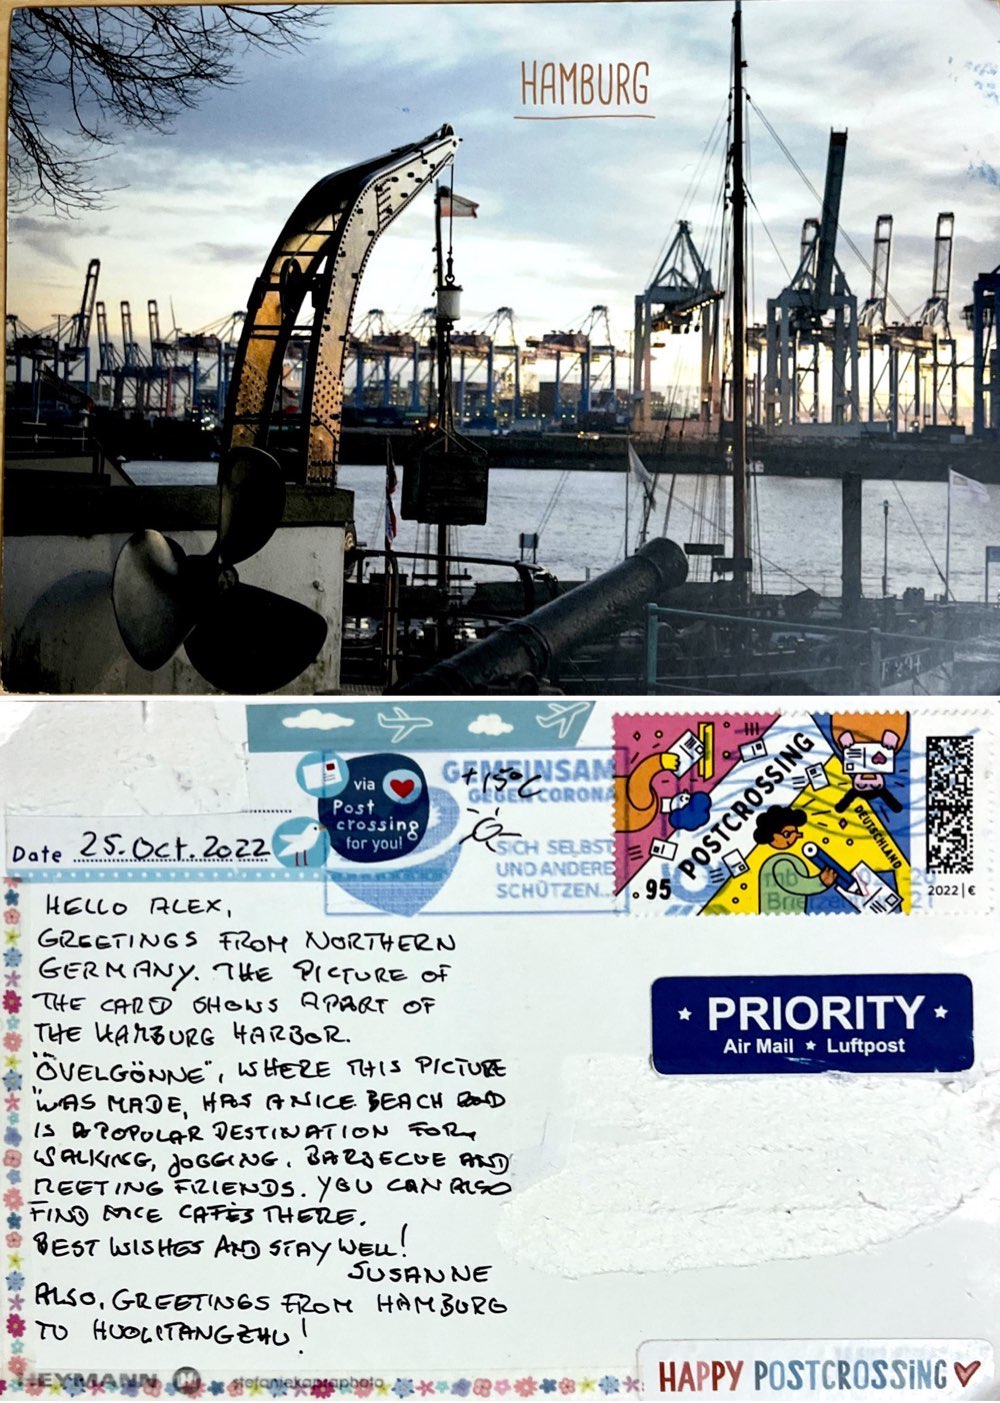 HAMBURG
via
Post
crossing
for you!
GEMEINSAM
GEGEN CORONA
SICH SELBST
UND ANDERE
SCHÜTZEN...
+15°C
POSTCROSSING
DEUTSCHLAND
.95
2022 | €
Date 25. Oct. 2022
HELLO ALEX,
GREETINGS FROM NORTHERN
GERMANY. THE PICTURE OF
THE CARD SHOWS A PART OF
THE HAMBURG HARBOR.
"ÖVELGÖNNE", WHERE THIS PICTURE
WAS MADE, HAS A NICE BEACH AND
IS A POPULAR DESTINATION FOR
WALKING, JOGGING, BARBECUE AND
MEETING FRIENDS. YOU CAN ALSO
FIND NICE CAFÉS THERE.
BEST WISHES AND STAY WELL!
SUSANNE
ALSO, GREETINGS FROM HAMBURG
TO HUOLITANGZHU!
PRIORITY
Air Mail ★ Luftpost
HEYMANN
stefaniekapraphoto
HAPPY POSTCROSSING